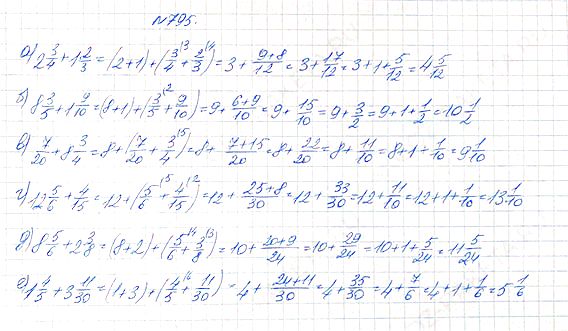 №795.
а) 2 3/4 + 1 2/3 = (2+1) + (3/4 \3 + 2/3 \4) = 3 + (9+8)/12 = 3 + 17/12 = 3 + 1 + 5/12 = 4 5/12
б) 8 3/5 + 1 9/10 = (8+1) + (3/5 \2 + 9/10) = 9 + (6+9)/10 = 9 + 15/10 = 9 + 3/2 = 9 + 1 + 1/2 = 10 1/2
в) 7/20 + 8 3/4 = 8 + (7/20 + 3/4 \5) = 8 + (7+15)/20 = 8 + 22/20 = 8 + 11/10 = 8 + 1 + 1/10 = 9 1/10
г) 12 5/6 + 4/15 = 12 + (5/6 \5 + 4/15 \2) = 12 + (25+8)/30 = 12 + 33/30 = 12 + 11/10 = 12 + 1 + 1/10 = 13 1/10
д) 8 5/6 + 2 3/8 = (8+2) + (5/6 \4 + 3/8 \3) = 10 + (20+9)/24 = 10 + 29/24 = 10 + 1 + 5/24 = 11 5/24
е) 1 4/5 + 3 11/30 = (1+3) + (4/5 \6 + 11/30) = 4 + (24+11)/30 = 4 + 35/30 = 4 + 7/6 = 4 + 1 + 1/6 = 5 1/6